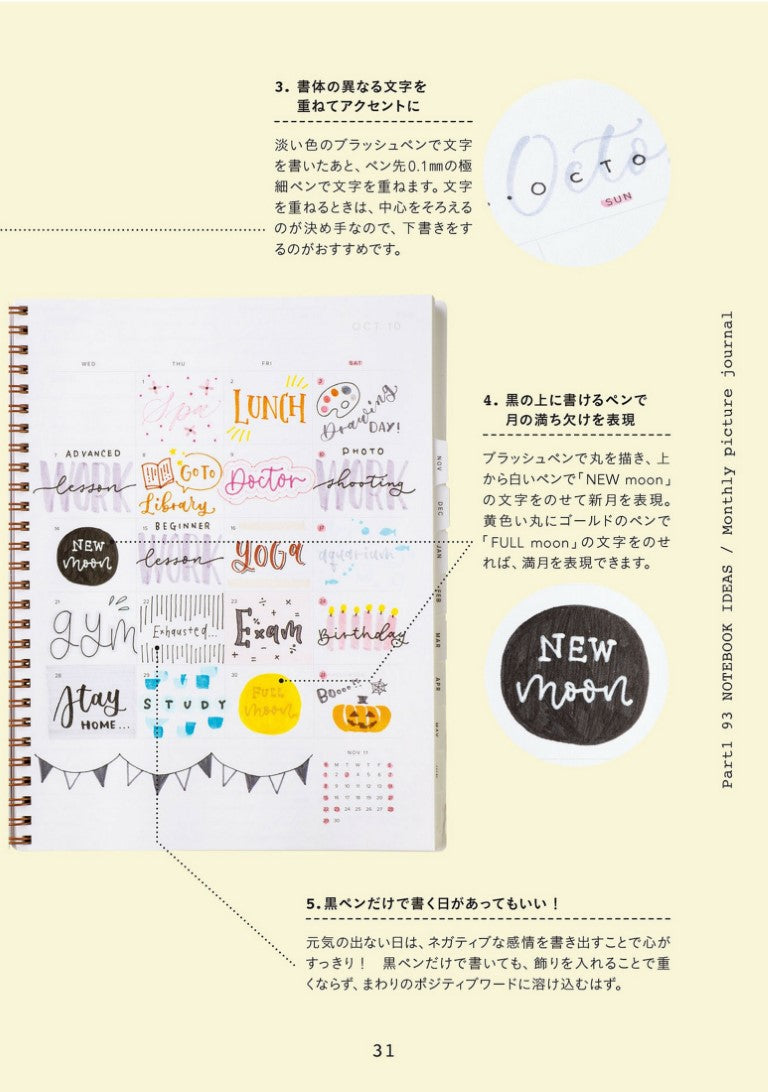 3. 書体の異なる文字を
重ねてアクセントに
淡い色のブラッシュペンで文字
を書いたあと、ペン先0.1㎜の極
細ペンで文字を重ねます。文字
を重ねるときは、中心をそろえる
のが決め手なので、下書きをす
るのがおすすめです。
Octo
OCTO
SUN
OCT 10
WED THU FRI SAT
1 2 3
Spa
LUNCH
Drawing
DAY!
7 8 9 10
ADVANCED
WORK
lesson
GO TO
Library
Doctor
PHOTO
WORK
shooting
14 15 16 17
NEW
moon
BEGINNER
WORK
lesson
YOGA
aquarium
21 22 23 24
gym
Exhausted...
Exam
Birthday
28 29 30 31
Stay
HOME...
STUDY
FULL
moon
Boo....
NOV 11
NOV
DEC
JAN
FEB
MAR
APR
MAY
4. 黒の上に書けるペンで
月の満ち欠けを表現
ブラッシュペンで丸を描き、上
から白いペンで「NEW moon」
の文字をのせて新月を表現。
黄色い丸にゴールドのペンで
「FULL moon」の文字をのせ
れば、満月を表現できます。
NEW
moon
Part1 93 NOTEBOOK IDEAS / Monthly picture journal
5. 黒ペンだけで書く日があってもいい！
元気の出ない日は、ネガティブな感情を書き出すことで心が
すっきり！　黒ペンだけで書いても、飾りを入れることで重
くならず、まわりのポジティブワードに溶け込むはず。
31